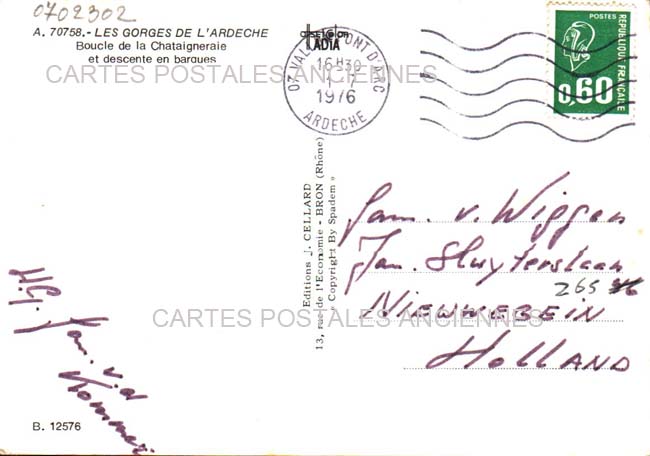 0702302
A. 70758.- LES GORGES DE L'ARDECHE
Boucle de la Chataigneraie
et descente en barques
CARTES POSTALES ANCIENNES
07 VALLON PONT D'ARC
16H30
1-7
1976
ARDECHE
POSTES
REPUBLIQUE FRANÇAISE
0,60
Editions J. CELLARD
13, rue de l'Economie - BRON (Rhône)
Copyright By Spadem
Fam. v. Wiggen
Jan Sluyterslaan
265
NIEUWEGEIN
HOLLAND
CARTES POSTALES ANCIENNES
H.G. Fam. v.d
Kommer
B. 12576